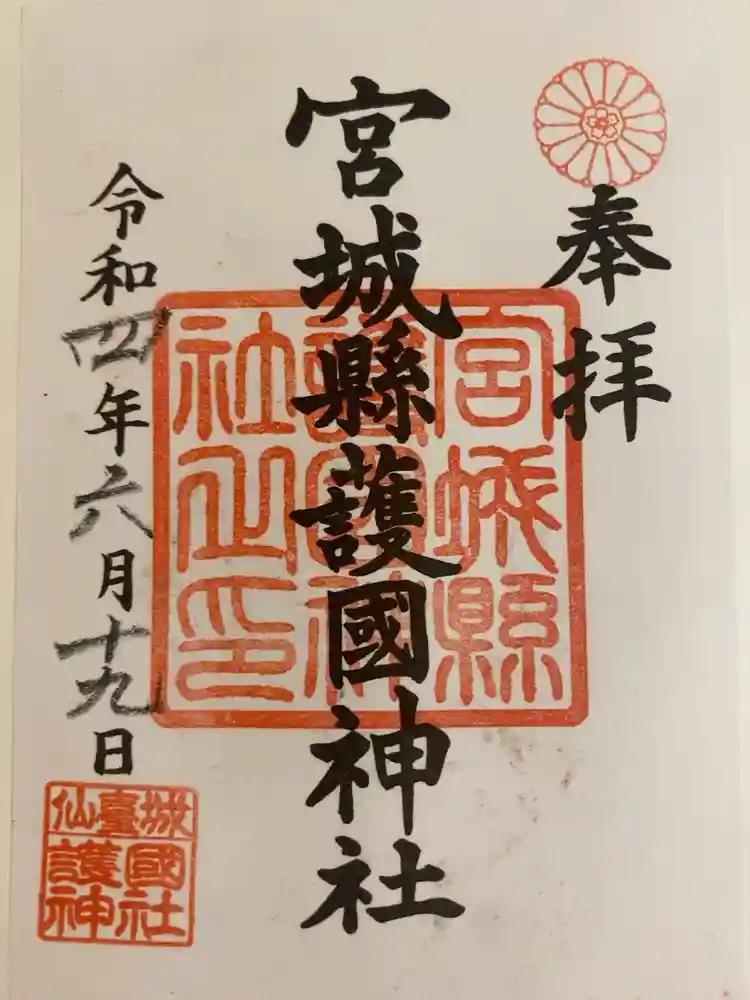 奉拝
宮城縣護國神社
宮城縣
護國神
社之印
令和四年六月十九日
仙臺城
護國
神社